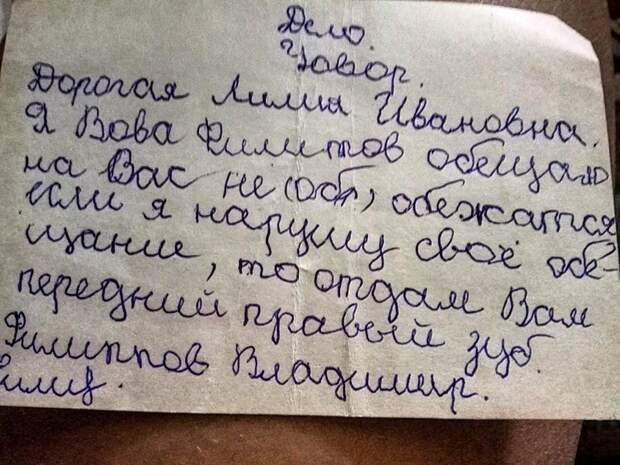 Дело.
Човор.
Дорогая Лилия Ивановна.
Я Вова Филипов обещаю
на Вас не (об), обежатся
если я нарушу своё обе-
щание, то отдам Вам
передний правый зуб.
Филиппов Владимир.